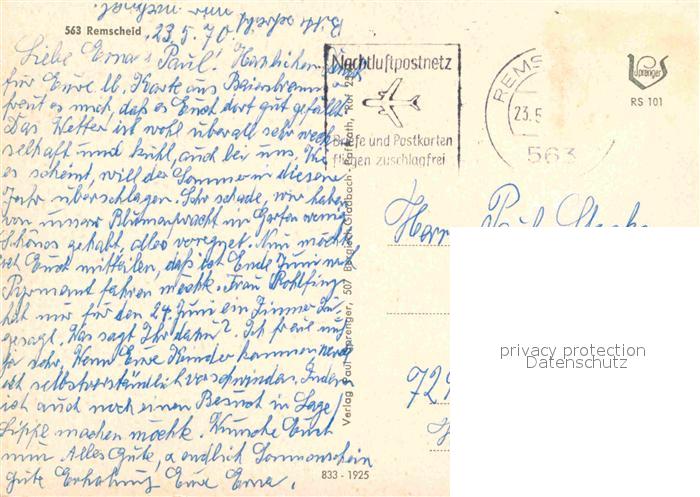 563 Remscheid, 23.5.70.
Liebe Erna u. Paul! Herzlichen Dank
für Eure lb. Karte aus Baiersbronn
freut es mich, daß es Euch dort gut gefällt.
Das Wetter ist wohl überall sehr wech-
selhaft und kühl, auch bei uns. Wie
es scheint, will der Sommer in diesem
Jahr überschlagen. Sehr schade, wir haben
von unserer Blumenpracht im Garten wenig
Schönes gehabt, alles verregnet. Nun möchte
ich Euch mitteilen, daß ich Ende Juni nach
Pyrmont fahren möchte. Frau Rohlfing
hat mir für den 24. Juni ein Zimmer zu-
gesagt. Was sagt Ihr dazu? Ich freue mich
ja sehr. Wenn Eure Kinder kommen
ich selbstverständlich verschwinden. Indem
ich auch noch einen Besuch in Lage
Lippe machen möchte. Wünsche Euch
nun Alles Gute, u. endlich Sonnenschein
gute Erholung Eure Erna.
Nachtluftpostnetz
Briefe und Postkarten
fliegen zuschlagfrei
REMS
23.5
563
Sprenger
RS 101
Verlag Paul Sprenger, 507 Bergisch Gladbach - Paffrath,
833 - 1925
Herrn Paul
729
privacy protection
Datenschutz